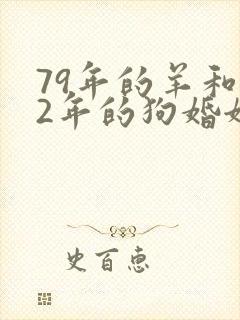 79年的羊和
2年的狗婚
史百惠